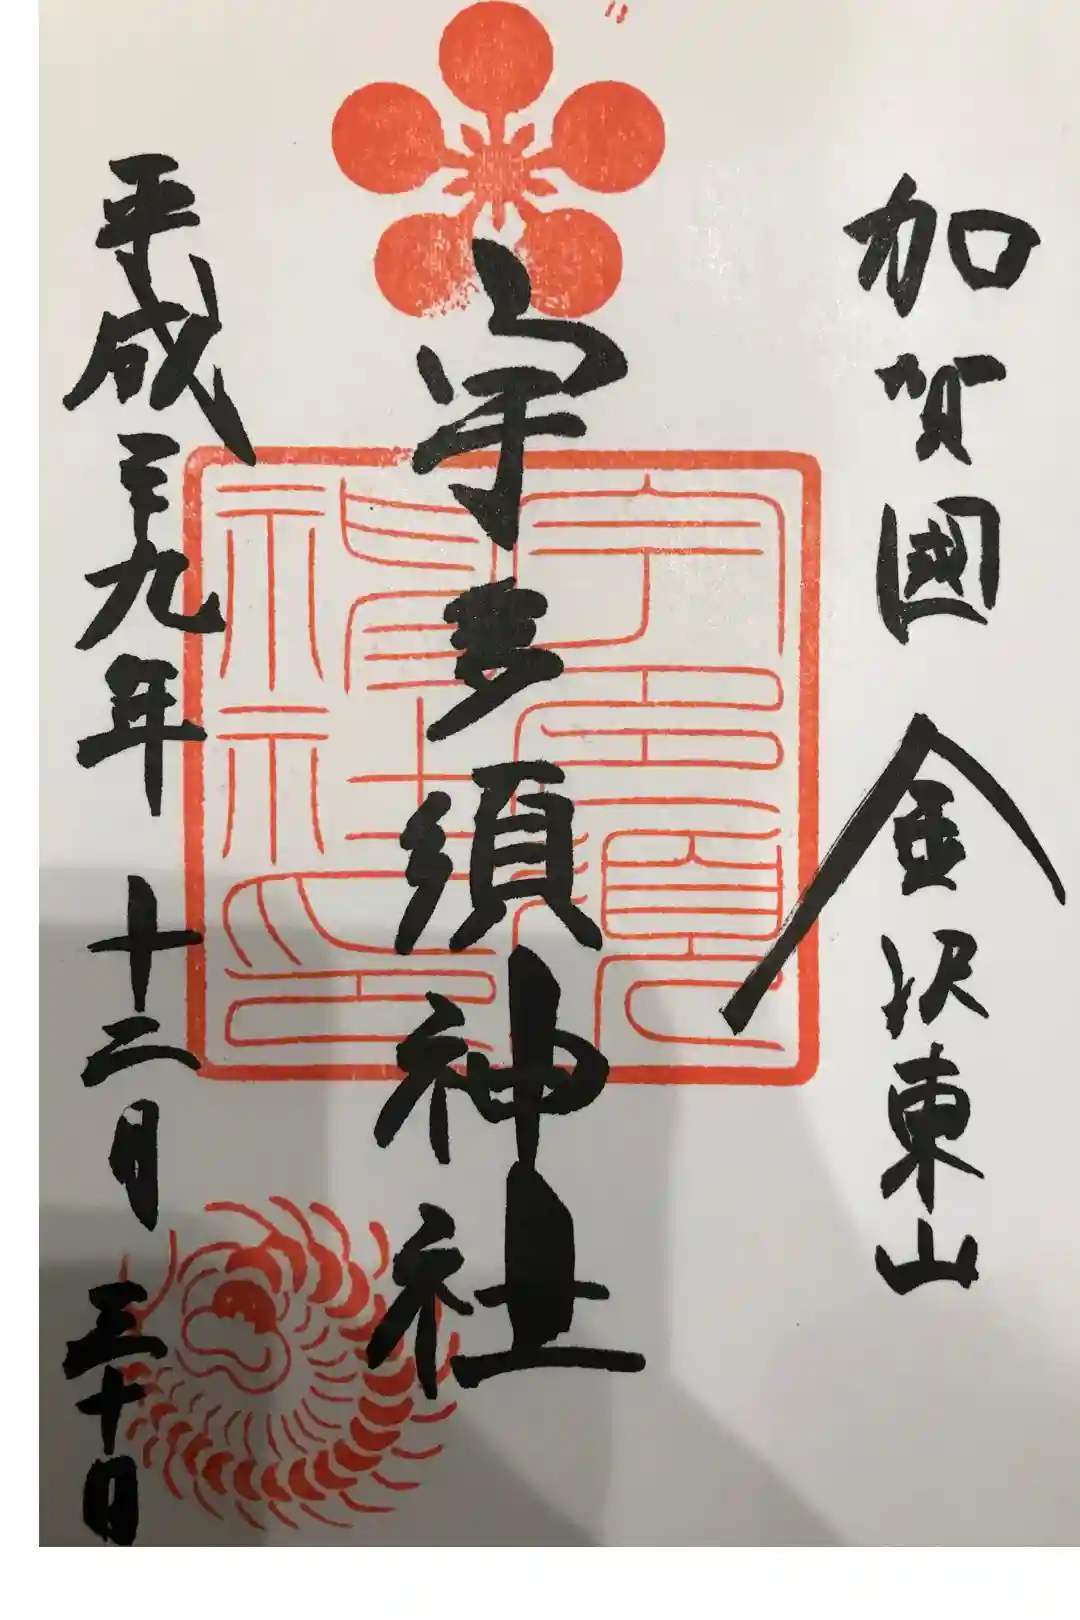 加賀國 金沢東山
宇多須神社
平成二十九年 十二月 三十日
宇多須
神社印